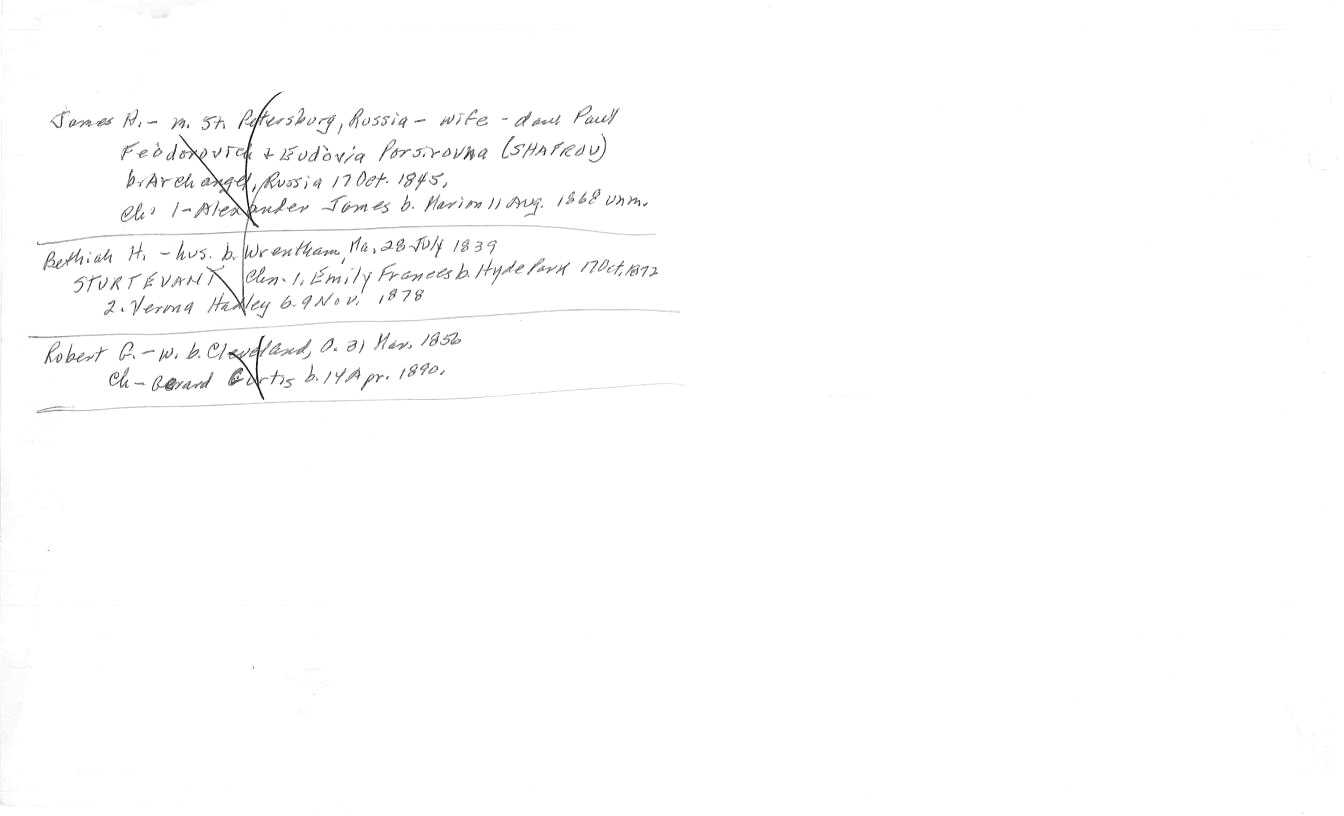 James H. - m. St. Petersburg, Russia - wife - dau Paull
Feodorovich + Eudovia Porsirovna (SHAPROV)
b. Archangel, Russia 17 Oct. 1845.
Ch: 1 - Alexander James b. Marion 11 Aug. 1868 unm.
Bethiah H. - hus. b. Wrentham, Ma. 28 July 1839
STURTEVANT Chn. 1. Emily Frances b. Hyde Park 17 Oct, 1872
2. Verona Hadley b. 9 Nov. 1878
Robert G. - w. b. Cleveland, O. 31 Mar. 1856
Ch - Gerard Curtis b. 14 Apr. 1890.